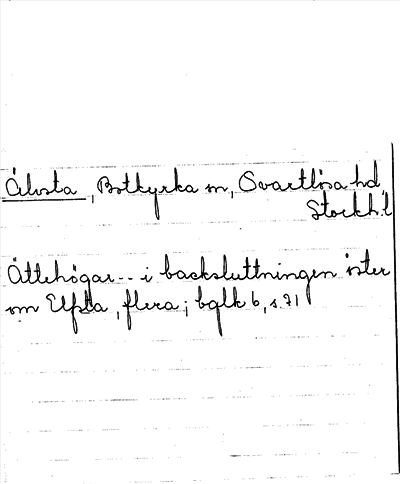 Älvsta, Botkyrka sn, Svartlösa hd,
Stockh. l
Ättehögar -- i backsluttningen öster
om Elfsta, flera; bglk 6, s. 71